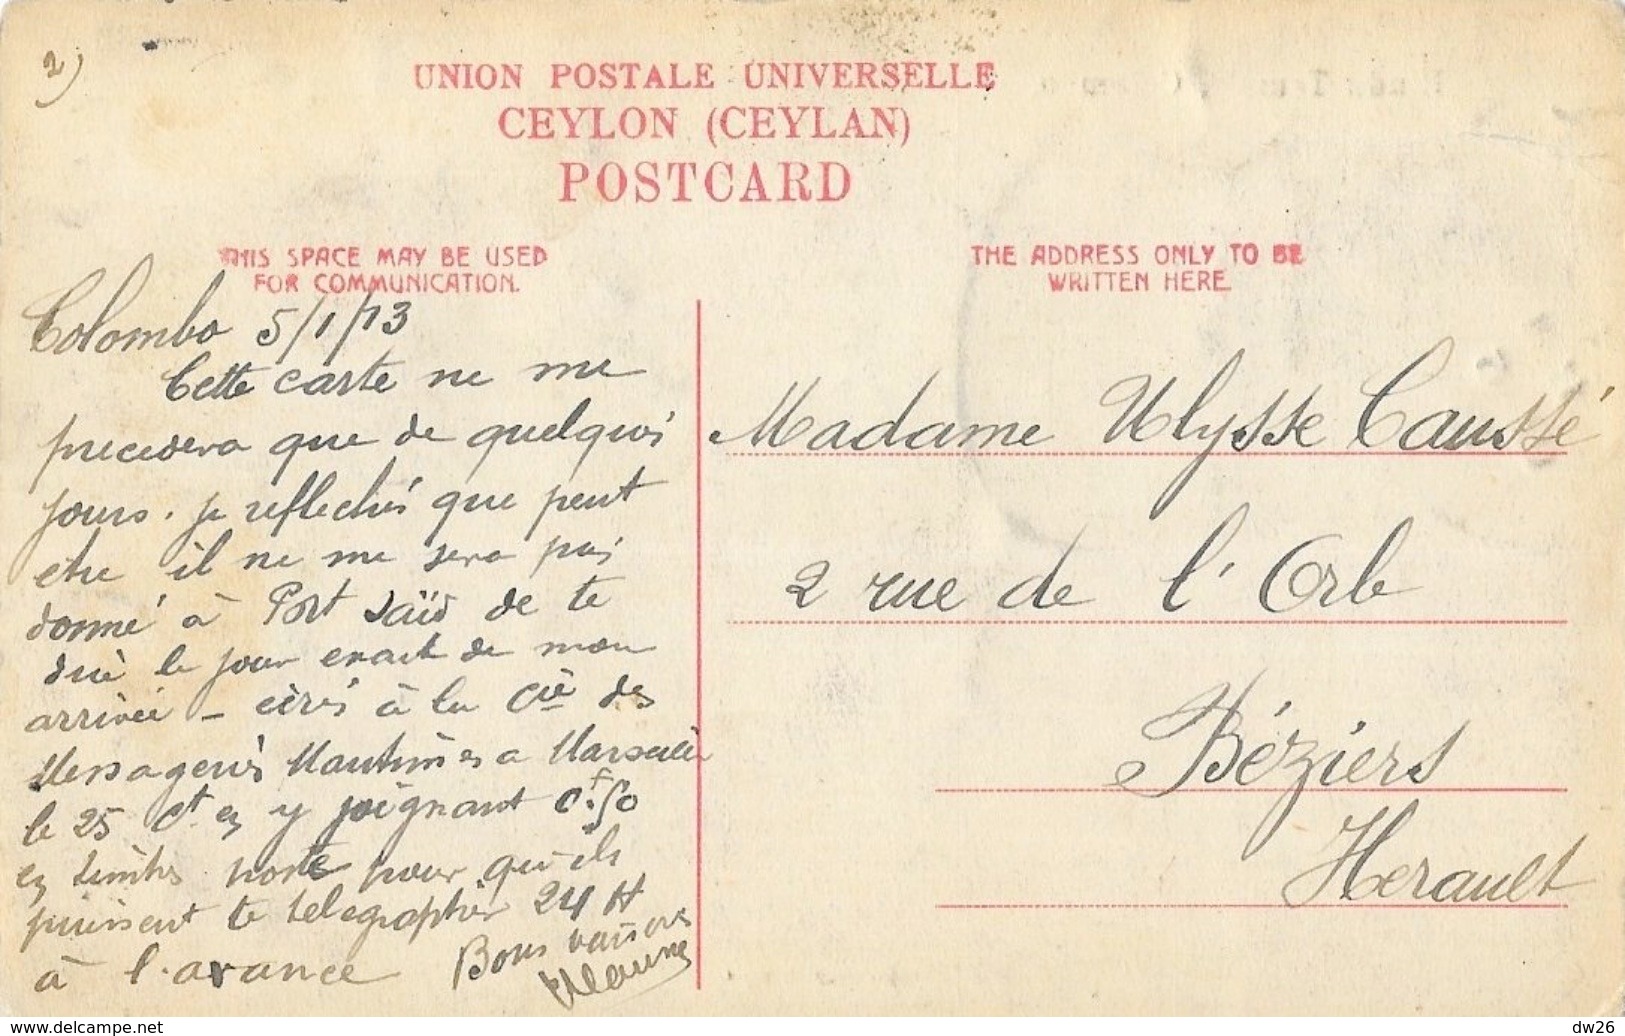 2)
UNION POSTALE UNIVERSELLE
CEYLON (CEYLAN)
POSTCARD
THIS SPACE MAY BE USED
FOR COMMUNICATION.
THE ADDRESS ONLY TO BE
WRITTEN HERE
Colombo 5/1/13
Cette carte ne me
precedera que de quelques
jours. je reflechis que peut
etre il ne me sera pas
donné à Port Saïd de te
dire le jour exact de mon
arrivée - écris à la Cie des
Messageries Maritimes a Marseille
le 25 Ct en y joignant 0f.50
en timbres poste pour qu'ils
puissent te telegraphier 24 H
à l'avance Bons baisers
Madame Ulysse Caussé
2 rue de l'Orb
Béziers
Herault
www.delcampe.net
dw26